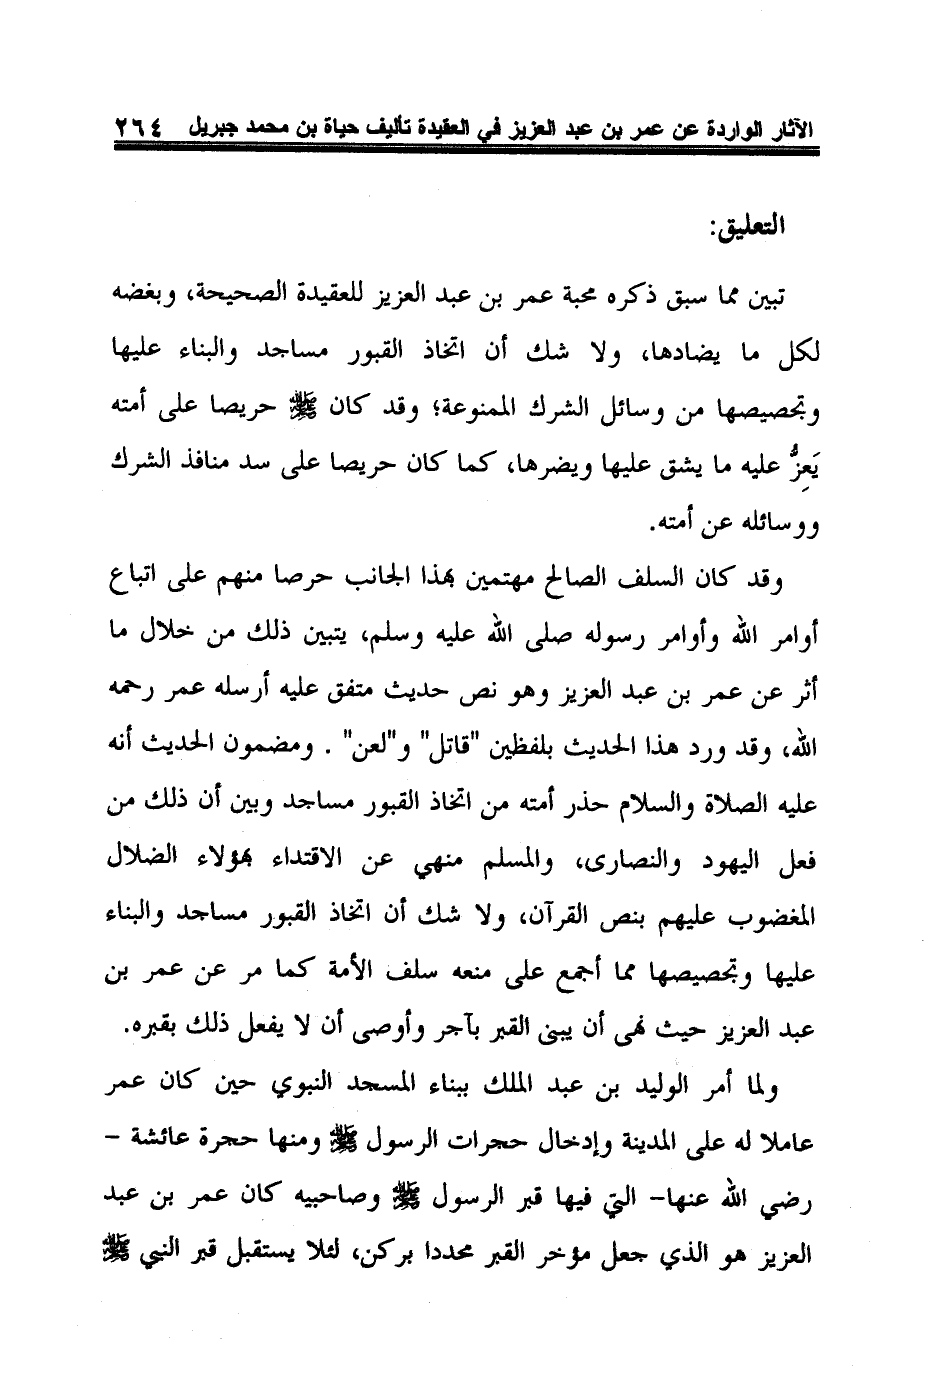 الآثار الواردة عن عمر بن عبد العزيز في العقيدة تأليف حياة بن محمد جبريل ٢٦٤
التعليق:
تبين مما سبق ذكره محبة عمر بن عبد العزيز للعقيدة الصحيحة، وبغضه
لكل ما يضادها، ولا شك أن اتخاذ القبور مساجد والبناء عليها
وتجصيصها من وسائل الشرك الممنوعة؛ وقد كان ﷺ حريصا على أمته
يَعِزُّ عليه ما يشق عليها ويضرها، كما كان حريصا على سد منافذ الشرك
ووسائله عن أمته.
وقد كان السلف الصالح مهتمين بهذا الجانب حرصا منهم على اتباع
أوامر الله وأوامر رسوله صلى الله عليه وسلم، يتبين ذلك من خلال ما
أثر عن عمر بن عبد العزيز وهو نص حديث متفق عليه أرسله عمر رحمه
الله، وقد ورد هذا الحديث بلفظين "قاتل" و"لعن" . ومضمون الحديث أنه
عليه الصلاة والسلام حذر أمته من اتخاذ القبور مساجد وبين أن ذلك من
فعل اليهود والنصارى، والمسلم منهي عن الاقتداء بهؤلاء الضلال
المغضوب عليهم بنص القرآن، ولا شك أن اتخاذ القبور مساجد والبناء
عليها وتجصيصها مما أجمع على منعه سلف الأمة كما مر عن عمر بن
عبد العزيز حيث نهى أن يبنى القبر بآجر وأوصى أن لا يفعل ذلك بقبره.
ولما أمر الوليد بن عبد الملك ببناء المسجد النبوي حين كان عمر
عاملا له على المدينة وإدخال حجرات الرسول ﷺ ومنها حجرة عائشة -
رضي الله عنها- التي فيها قبر الرسول ﷺ وصاحبيه كان عمر بن عبد
العزيز هو الذي جعل مؤخر القبر محددا بركن، لئلا يستقبل قبر النبي ﷺ